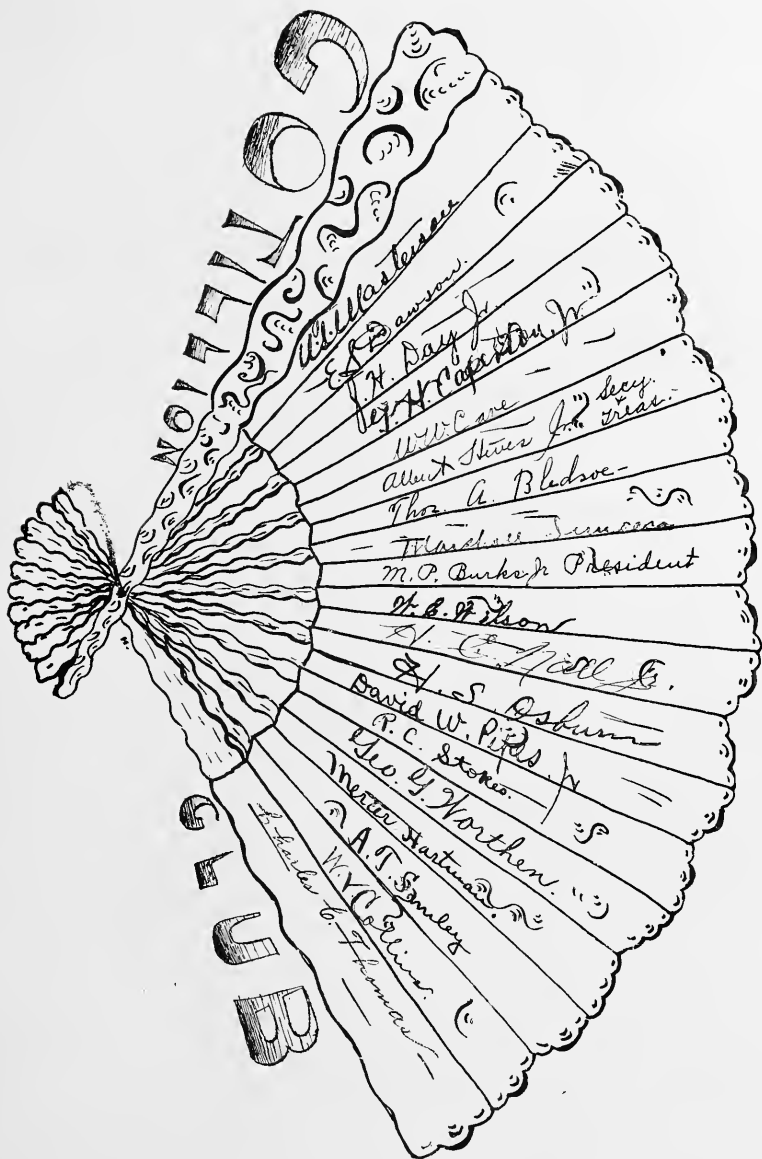 COTILLION
W. S. Masterson
E. S. Dawson.
J. H. Day Jr.
G. H. Caperton, Jr
W. W. Cave
Albert Steves Jr. Secy. & Treas.
Thos. A. Bledsoe
Marshall
M. P. Burks Jr President
W. E. Wilson
H. S. Osburn
David W. Pipes. Jr
R. C. Stokes.
Geo. G. Worthen.
Mercer Hartman.
A. T. Smiley
W. V. Collins.
Charles C. Thomas
CLUB